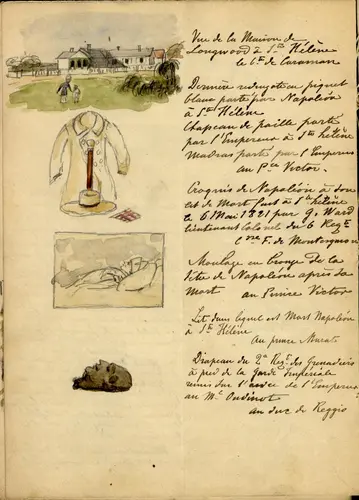 Vue de la Maison de
Longwood à Ste Hélène
le Cte de Caraman
Dernière redingote en piquet
blanc portée par Napoléon
à Ste Hélène
Chapeau de paille porté
par l'Empereur à Ste hélène
Madras porté par l'Empereur
au Pce Victor.
Croquis de Napoléon à son
lit de Mort fait à Ste hélène
le 6 Mai 1821 par G. Ward
lieutenant Colonel du 6 Regt
F. de Montesquiou
Moulage en bronze de la
tête de Napoléon après sa
Mort au Prince Victor
Lit dans lequel est Mort Napoléon
à Ste Hélène
au prince Murat
Drapeau du 2e Regt des Grenadiers
à pied de la Garde Impériale
remis sur l'ordre de l'Empereur
au Mal Oudinot
au duc de Reggio